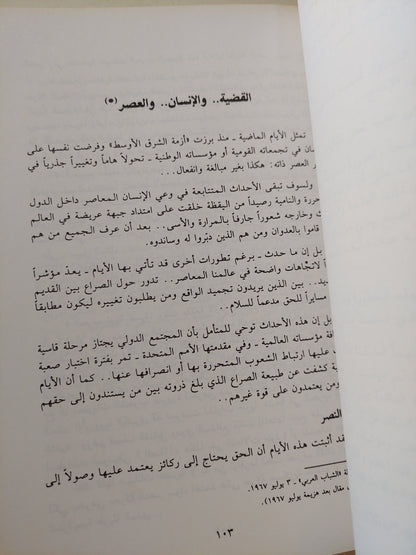 القضية.. والإنسان.. والعصر (*)
تمثل الأيام الماضية ـ منذ برزت «أزمة الشرق الأوسط» وفرضت نفسها على
في تجمعاته القومية أو مؤسساته الوطنية ـ تحولاً هاماً وتغييراً جذرياً في
العصر ذاته: هكذا بغير مبالغة وانفعال...
ولسوف تبقى الأحداث المتتابعة في وعي الإنسان المعاصر داخل الدول
والنامية رصيداً من اليقظة خلقت على امتداد جبهة عريضة في العالم
وخارجه شعوراً جارفاً بالمرارة والأسى.. بعد أن عرف الجميع من هم
قاموا بالعدوان ومن هم الذين دبّروا له وساندوه.
بل إن ما حدث ـ برغم تطورات أخرى قد تأتي بها الأيام ـ يعدّ مؤشراً
لاتجاهات واضحة في عالمنا المعاصر.. تدور حول الصراع بين القديم
.. بين الذين يريدون تجميد الواقع ومن يطلبون تغييره ليكون مطابقاً
مسايراً للحق مدعماً للسلام..
بل إن هذه الأحداث توحي للمتأمل بأن المجتمع الدولي يجتاز مرحلة قاسية
مؤسساته العالمية ـ وفي مقدمتها الأمم المتحدة ـ تمر بفترة اختبار صعبة
عليها ارتباط الشعوب المتحررة بها أو انصرافها عنها.. كما أن الأيام
كشفت عن طبيعة الصراع الذي بلغ ذروته بين من يستندون إلى حقهم
ومن يعتمدون على قوة غيرهم..
النصر
أثبتت هذه الأيام أن الحق يحتاج إلى ركائز يعتمد عليها وصولاً إلى
«الشباب العربي» ـ ٣ يوليو ١٩٦٧
مقال بعد هزيمة يوليو ١٩٦٧).
١٠٣